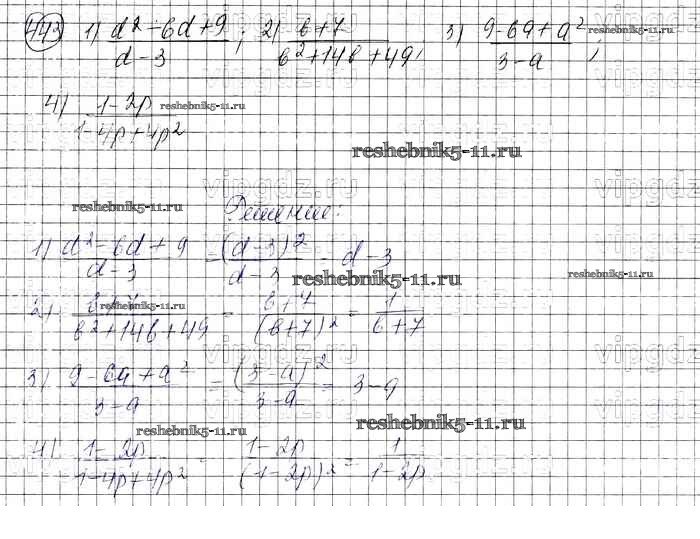 443 1) (d² - 6d + 9)/(d - 3); 2) (b + 7)/(b² + 14b + 49), 3) (9 - 6a + a²)/(3 - a);
4) (1 - 2p)/(1 - 4p + 4p²) reshebnik5-11.ru
reshebnik5-11.ru
reshebnik5-11.ru
vipgdz.ru
Решение:
1) (d² - 6d + 9)/(d - 3) = (d - 3)²/(d - 3) = d - 3
reshebnik5-11.ru
reshebnik5-11.ru
2) (b + 7)/(b² + 14b + 49) = (b + 7)/(b + 7)² = 1/(b + 7)
3) (9 - 6a + a²)/(3 - a) = (3 - a)²/(3 - a) = 3 - a
reshebnik5-11.ru
reshebnik5-11.ru
4) (1 - 2p)/(1 - 4p + 4p²) = (1 - 2p)/(1 - 2p)² = 1/(1 - 2p)